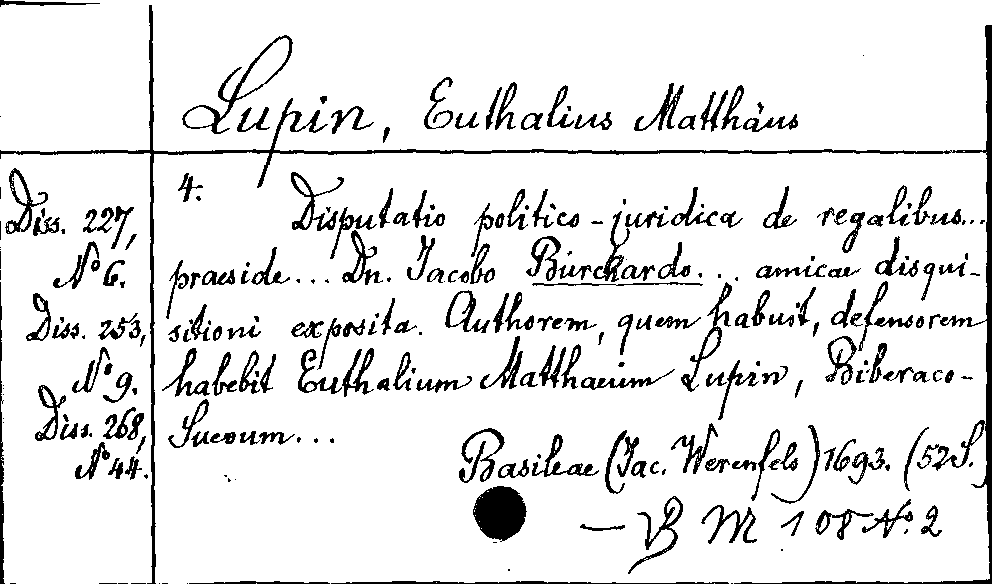 Lupin, Euthalius Matthäus
4.
Diss. 227,
No 6.
Diss. 253,
No 9.
Diss. 268,
No 44.
Disputatio politico-juridica de regalibus...
praeside... Dn. Jacobo Burckardo... amicae disqui-
sitioni exposita. Authorem, quem habuit, defensorem
habebit Euthalium Matthaeum Lupin, Biberaco-
Suevum...
Basileae (Jac. Werenfels) 1693. (52 S.)
— VB M 108 No. 2